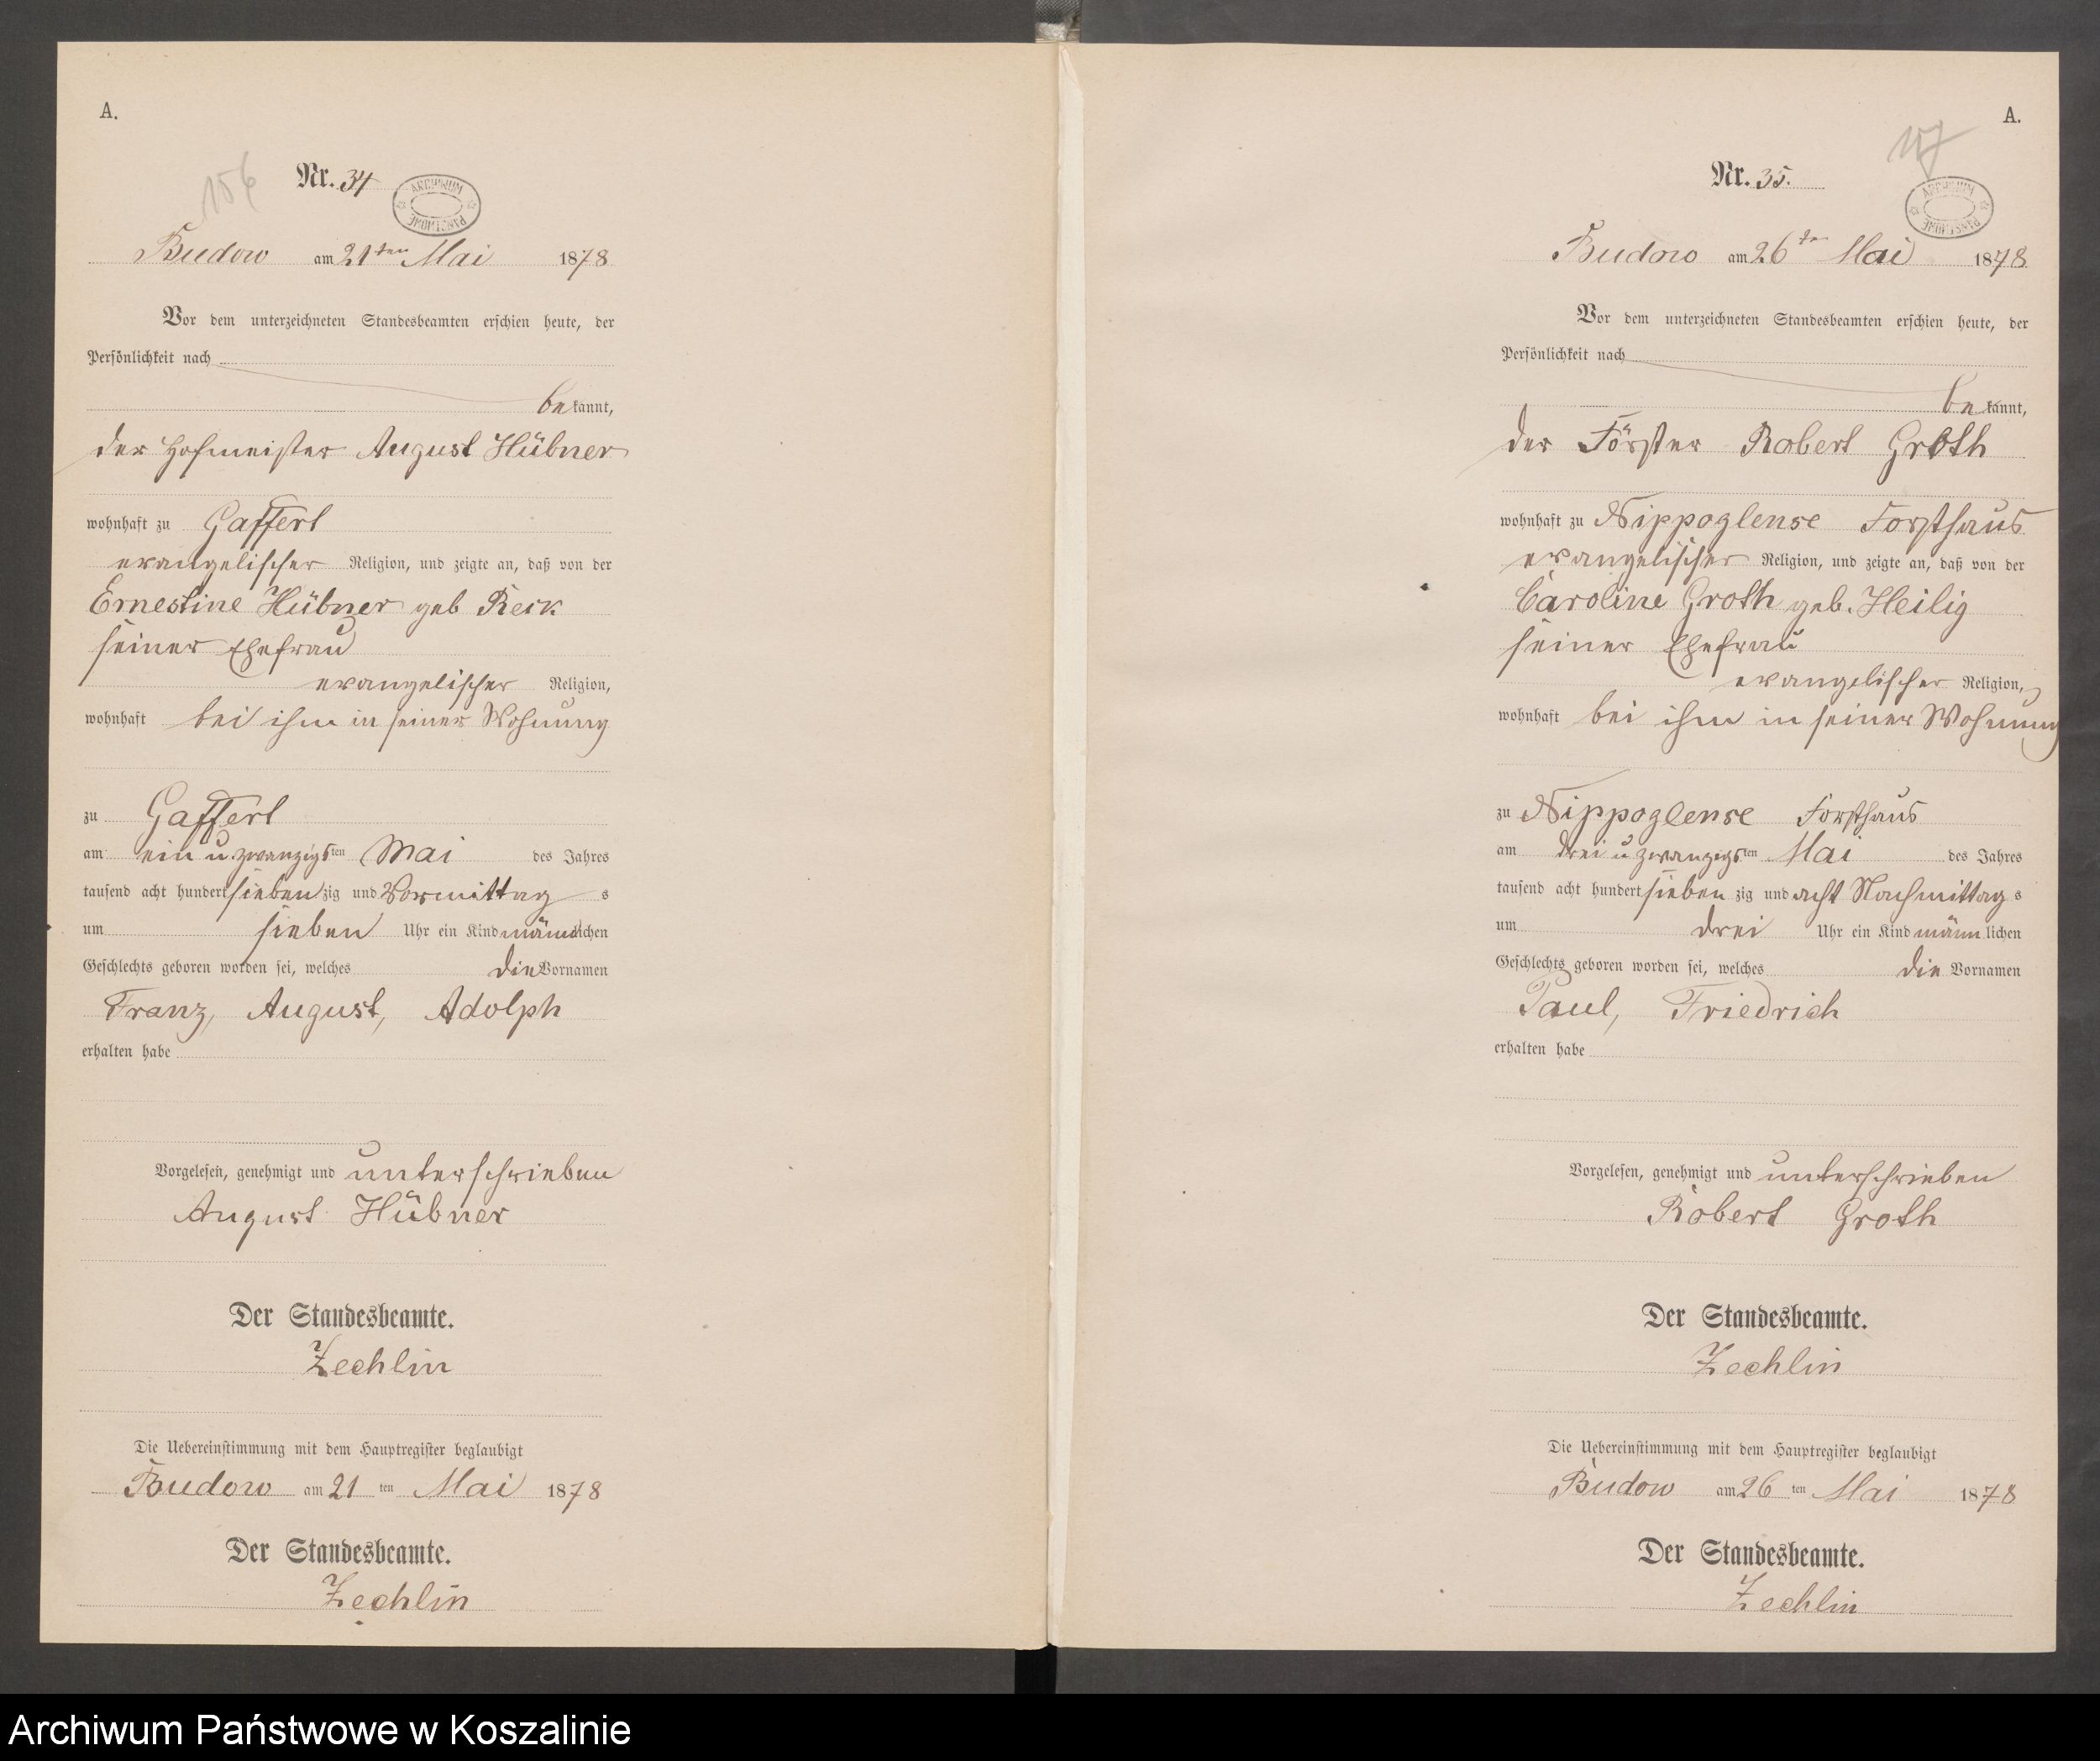 A.
156
Nr. 34
ARCHIWUM PAŃSTWOWE
Budow am 21ten Mai 1878
Vor dem unterzeichneten Standesbeamten erschien heute, der
Persönlichkeit nach
bekannt,
der Hofmeister August Hübner
wohnhaft zu Gaffert
evangelischer Religion, und zeigte an, daß von der
Ernestine Hübner geb Reik
seiner Ehefrau
evangelischer Religion,
wohnhaft bei ihm in seiner Wohnung
zu Gaffert
am ein u zwanzigsten Mai des Jahres
tausend acht hundert siebenzig und Vormittag s
um sieben Uhr ein Kind männlichen
Geschlechts geboren worden sei, welches die Vornamen
Franz, August, Adolph
erhalten habe
Vorgelesen, genehmigt und unterschrieben
August Hübner
Der Standesbeamte.
Zechlin
Die Uebereinstimmung mit dem Hauptregister beglaubigt
Budow am 21 ten Mai 1878
Der Standesbeamte.
Zechlin
A.
Nr. 35.
ARCHIWUM PAŃSTWOWE
Budow am 26ten Mai 1878
Vor dem unterzeichneten Standesbeamten erschien heute, der
Persönlichkeit nach
bekannt,
der Förster Robert Groth
wohnhaft zu Nippoglense Forsthaus
evangelischer Religion, und zeigte an, daß von der
Caroline Groth geb. Heilig
seiner Ehefrau
evangelischer Religion,
wohnhaft bei ihm in seiner Wohnung
zu Nippoglense Forsthaus
am drei u zwanzigsten Mai des Jahres
tausend acht hundert siebenzig und acht Nachmittags
um drei Uhr ein Kind männlichen
Geschlechts geboren worden sei, welches die Vornamen
Paul, Friedrich
erhalten habe
Vorgelesen, genehmigt und unterschrieben
Robert Groth
Der Standesbeamte.
Zechlin
Die Uebereinstimmung mit dem Hauptregister beglaubigt
Budow am 26 ten Mai 1878
Der Standesbeamte.
Zechlin
Archiwum Państwowe w Koszalinie